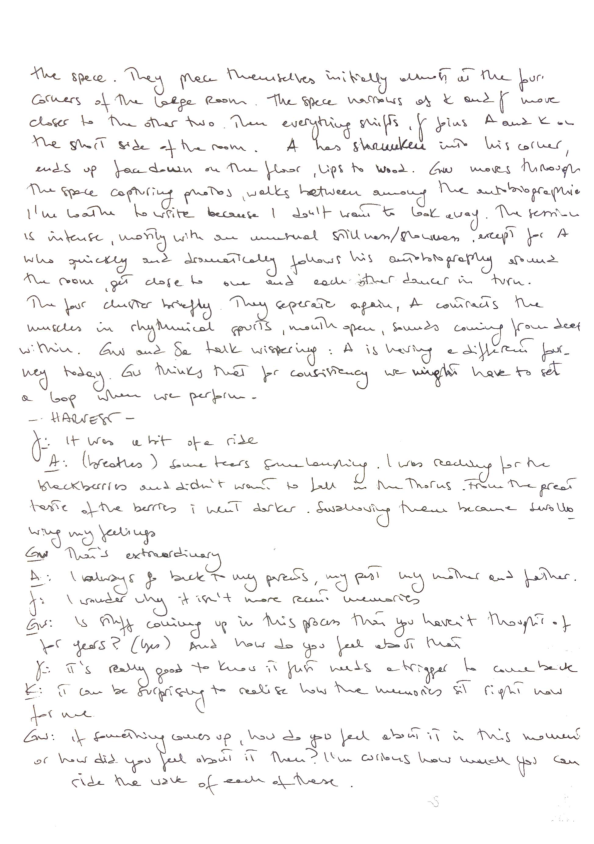 the space. They place themselves initially almost at the four
corners of the large room. The space narrows as K and J move
closer to the other two. Then everything shifts, J joins A and K on
the short side of the room. A has shrunken into his corner,
ends up face down on the floor, lips to wood. Gw moves through
the space capturing photos, walks between among the autobiographie
I'm loathe to write because I don't want to look away. The session
is intense, mostly with an unusual stillness/slowness, except for A
who quickly and dramatically follows his autobiography around
the room, get close to one and each other dancer in turn.
The four cluster briefly. They seperate again, A contracts the
muscles in rhythmical spurts, mouth open, sounds coming from deep
within. Gw and Sa talk wispering: A is having a different jour-
ney today. Gw thinks that for consistency we might have to set
a loop when we perform -
- HARVEST -
J: It was a bit of a ride
A: (breathes) some tears some laughing. I was reaching for the
blackberries and didn't want to fall in the thorns. From the great
taste of the berries i went darker. Swallowing them became swallo
wing my feelings
Gw That's extraordinary
A: I always go back to my parents, my past my mother and father.
J: I wonder why it isn't more recent memories
Gw: Is stuff coming up in this process that you haven't thought of
for years? (yes) And how do you feel about that
J: it's really good to know it just needs a trigger to come back
K: it can be surprising to realise how the memories sit right now
for me
Gw: if something comes up, how do you feel about it in this moment
or how did you feel about it then? I'm curious how much you can
ride the wave of each of these.